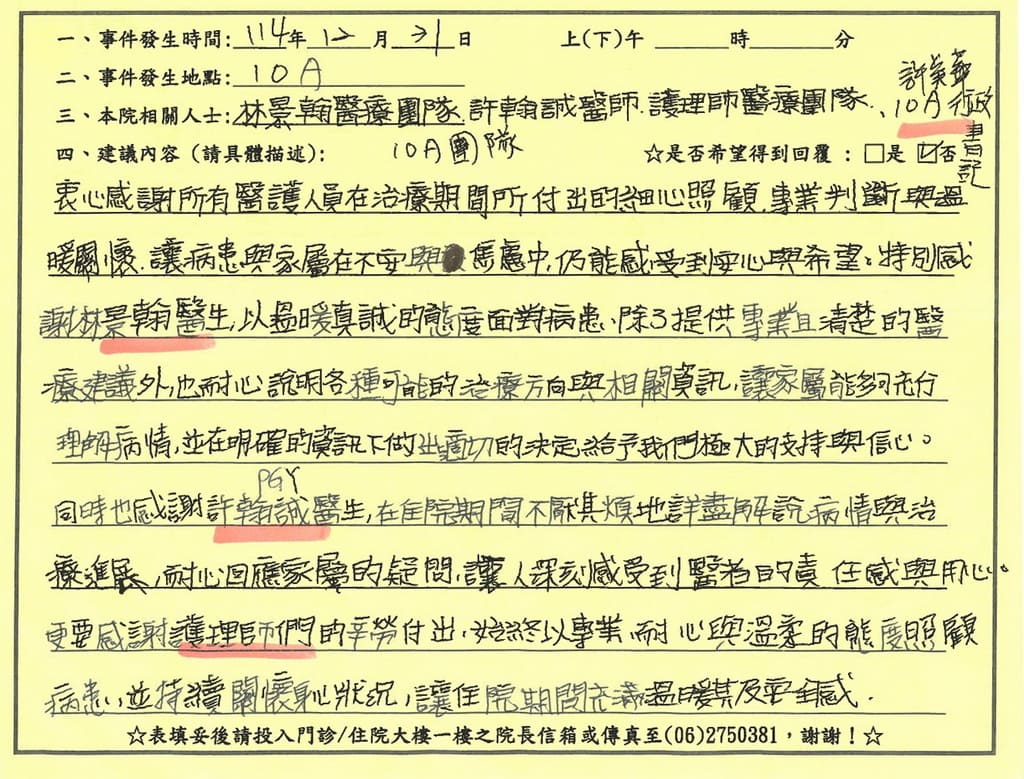 一、事件發生時間:114年12月31日 上(下)午 時 分
二、事件發生地點:10A
許
三、本院相關人士:林景翰醫療團隊.許翰誠醫師.護理師醫療團隊、10A行政書記
10A團隊
四、建議內容(請具體描述): ☆是否希望得到回覆:□是 ☑否
衷心感謝所有醫護人員在治療期間所付出的細心照顧,專業判斷與溫
暖關懷.讓病患與家屬在不安與焦慮中,仍能感受到安心與希望。特別感
謝林景翰醫生,以溫暖真誠的態度面對病患、除了提供專業且清楚的醫
療建議外,也耐心說明各種可能的治療方向與相關資訊,讓家屬能夠充分
理解病情,並在明確的資訊下做出適切的決定,給予我們極大的支持與信心。
PGY
同時也感謝許翰誠醫生,在住院期間不厭其煩地詳盡解說病情與治
療進展,耐心回應家屬的疑問,讓人深刻感受到醫者的責任感與用心。
更要感謝護理師們的辛勞付出,始終以專業、耐心與溫柔的態度照顧
病患,並持續關懷身心狀況,讓住院期間充滿溫暖及安全感.
☆表填妥後請投入門診/住院大樓一樓之院長信箱或傳真至(06)2750381,謝謝!☆